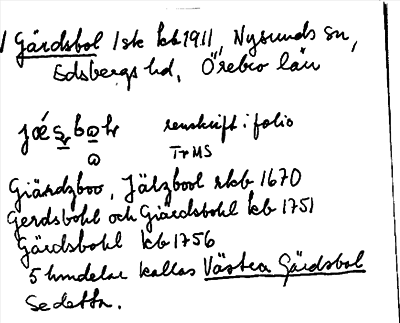 Gärdsbol 1sk kb 1911, Nysunds sn,
Edsbergs hd, Örebro län
renskrift i folio
TrMS
Giärdzboo, Jälzbool rkb 1670
Gerdsbohl och Giärdsbohl kb 1751
Gärdsbohl kb 1756
5 hmdelar kallas Västra Gärdsbol
Se detta.